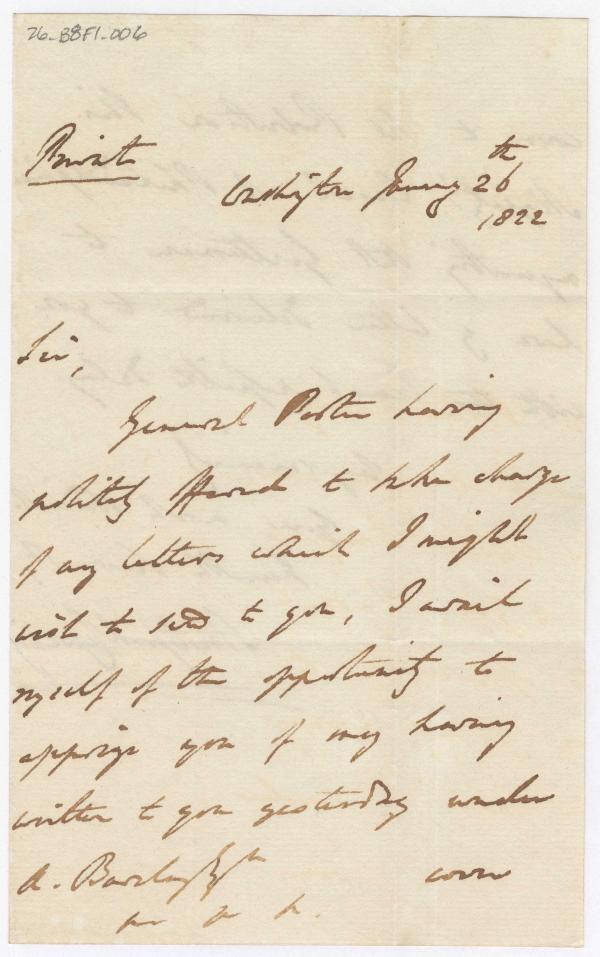 26-B8F1-006
Private
Washington January 26th
1822
Sir,
General Porter having
politely offered to take charge
of any letters which I might
wish to send to you, I avail
myself of the opportunity to
apprize you of my having
written to you yesterday under
A. Barclay Esqr cover